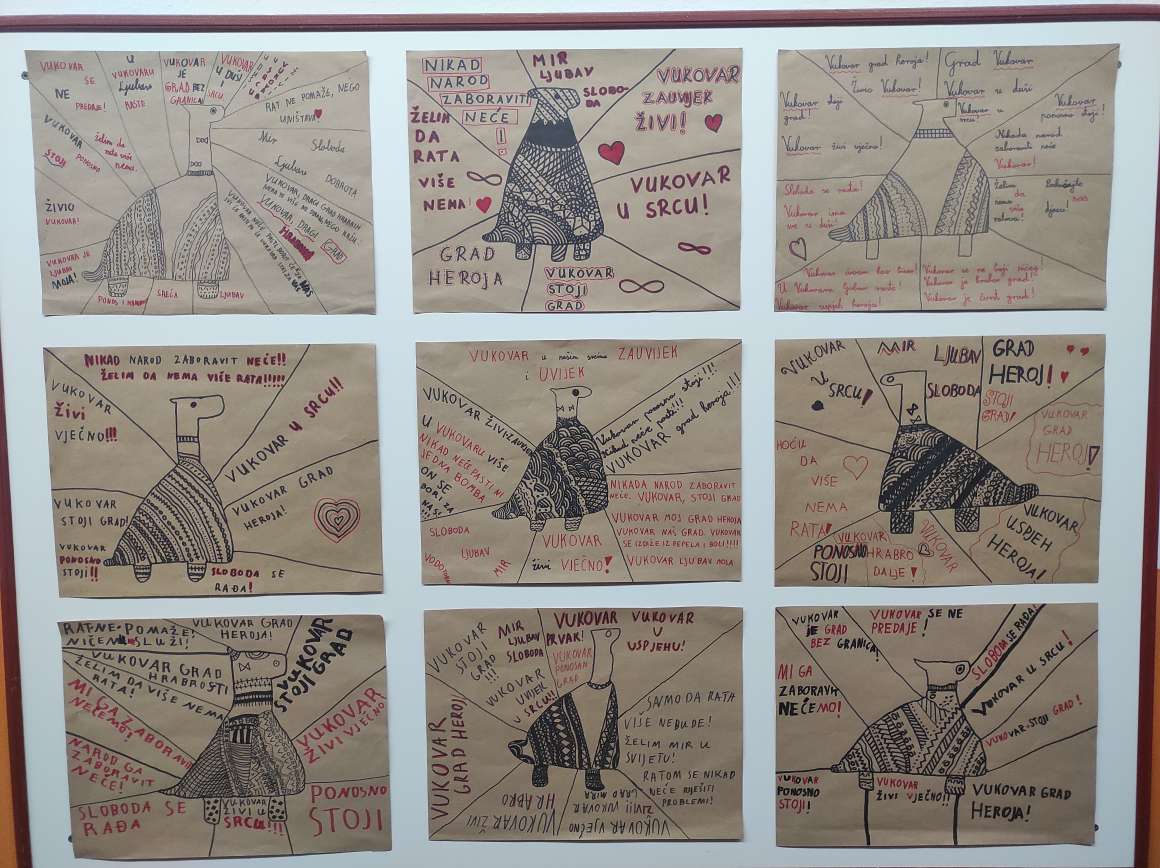 VUKOVAR
SE
NE
PREDAJE!
U
VUKOVARU
Ljubav
RASTE
VUKOVAR
JE
GRAD BEZ
GRANICA!
VUKOVAR
U DUŠI
SRCU
RAT NE POMAŽE, NEGO
UNIŠTAVA
Mir
Sloboda
Ljubav
DOBROTA
VUKOVAR
STOJI
PONOSNO
želim da
rata više
nema.
ŽIVIO
VUKOVAR!
VUKOVAR JE
LJUBAV
MOJA!
PONOS I
SREĆA
LJUBAV
VUKOVAR, DRAGI GRAD
NIKAD
NAROD
ZABORAVITI
NEĆE
!
MIR
LJUBAV
SLOBO-
DA
VUKOVAR
ZAUVIJEK
ŽIVI!
ŽELIM
DA
RATA
VIŠE
NEMA!
VUKOVAR
U SRCU!
GRAD
HEROJA
VUKOVAR
STOJI
GRAD
Vukovar grad heroja!
Živio Vukovar!
Grad Vukovar
Vukovar u duši
Vukovar u
srcu!
Vukovar stoji
grad!
Vukovar
ponosno stoji!
Vukovar živi vječno!
Nikada narod
zaboraviti neće
Vukovar!
Sloboda se rađa!
Vukovar ima
sve u duši!
želim
da
nema
više
ratova!
djecu!
U Vukovaru ljubav raste!
Vukovar uspjeh heroja!
Vukovar se ne boji ničeg!
Vukovar je hrabar grad!
Vukovar je čvrst grad!
NIKAD NAROD ZABORAVIT NEĆE!!
ŽELIM DA NEMA VIŠE RATA!!!!!
VUKOVAR
živi
VJEČNO!!!
VUKOVAR U SRCU!!
VUKOVAR GRAD
HEROJA!
VUKOVAR
STOJI GRAD!
VUKOVAR
PONOSNO
STOJI!!
SLOBODA SE
RAĐA!
VUKOVAR u našim srcima ZAUVIJEK
i UVIJEK
VUKOVAR ŽIVI ZAUVIJEK
U VUKOVARU VIŠE
NIKAD NEĆE PASTI NI
JEDNA BOMBA
ON SE
BORI ZA
NAS!
Vukovar ponosno stoji!!!
nikad neće pasti!!!
VUKOVAR grad heroja!!!
NIKADA NAROD ZABORAVIT
NEĆE. VUKOVAR, STOJI GRAD
VUKOVAR MOJ GRAD HEROJA
VUKOVAR NAŠ GRAD. VUKOVAR
SE IZDIŽE IZ PEPELA I BOLI!!!!
VUKOVAR LJUBAV MOJA
SLOBODA
LJUBAV
MIR
VUKOVAR
živi VJEČNO!
VUKOVAR
U
SRCU!
MIR
LJUBAV
SLOBODA
GRAD
HEROJ!
STOJI
GRAD!
VUKOVAR
GRAD
HEROJ!
HOĆU
DA
VIŠE
NEMA
RATA!
VUKOVAR
PONOSNO
STOJI
HRABRO
DALJE!
VUKOVAR
VUKOVAR
USPJEH
HEROJA!
RAT NE POMAŽE!
NIČEMU SLUŽI!
VUKOVAR GRAD
HEROJA!
VUKOVAR
STOJI GRAD
VUKOVAR GRAD
HRABROSTI
ŽELIM DA VIŠE NEMA
RATA!
MI GA ZABORAVIT
NEĆEMO!
NAROD GA
ZABORAVIT
NEĆE!
SLOBODA SE
RAĐA
VUKOVAR
ŽIVI U
SRCU!!!
VUKOVAR
ŽIVI VJEČNO!
PONOSNO
STOJI
VUKOVAR
STOJI
GRAD
!!!
MIR
LJUBAV
SLOBODA
VUKOVAR
PRVAK!
VUKOVAR
PONOSAN
GRAD
VUKOVAR
U
USPJEHU!
VUKOVAR
UVIJEK
U SRCU!!
VUKOVAR
GRAD HEROJ
SAMO DA RATA
VIŠE NE BUDE!
ŽELIM MIR U
SVIJETU!
RATOM SE NIKAD
NEĆE RIJEŠITI
PROBLEMI!
VUKOVAR ŽIVI
VUKOVAR
HRABRO
VUKOVAR VJEČNO
ŽIVI!
VUKOVAR
GRAD MIRA
VUKOVAR
JE GRAD
BEZ GRANICA!
VUKOVAR SE NE
PREDAJE!
SLOBODA SE RAĐA!
MI GA
ZABORAVIT
NEĆEMO!
VUKOVAR U SRCU!
VUKOVAR STOJI GRAD!
VUKOVAR
PONOSNO
STOJI!
VUKOVAR
ŽIVI VJEČNO!!
VUKOVAR GRAD
HEROJA!